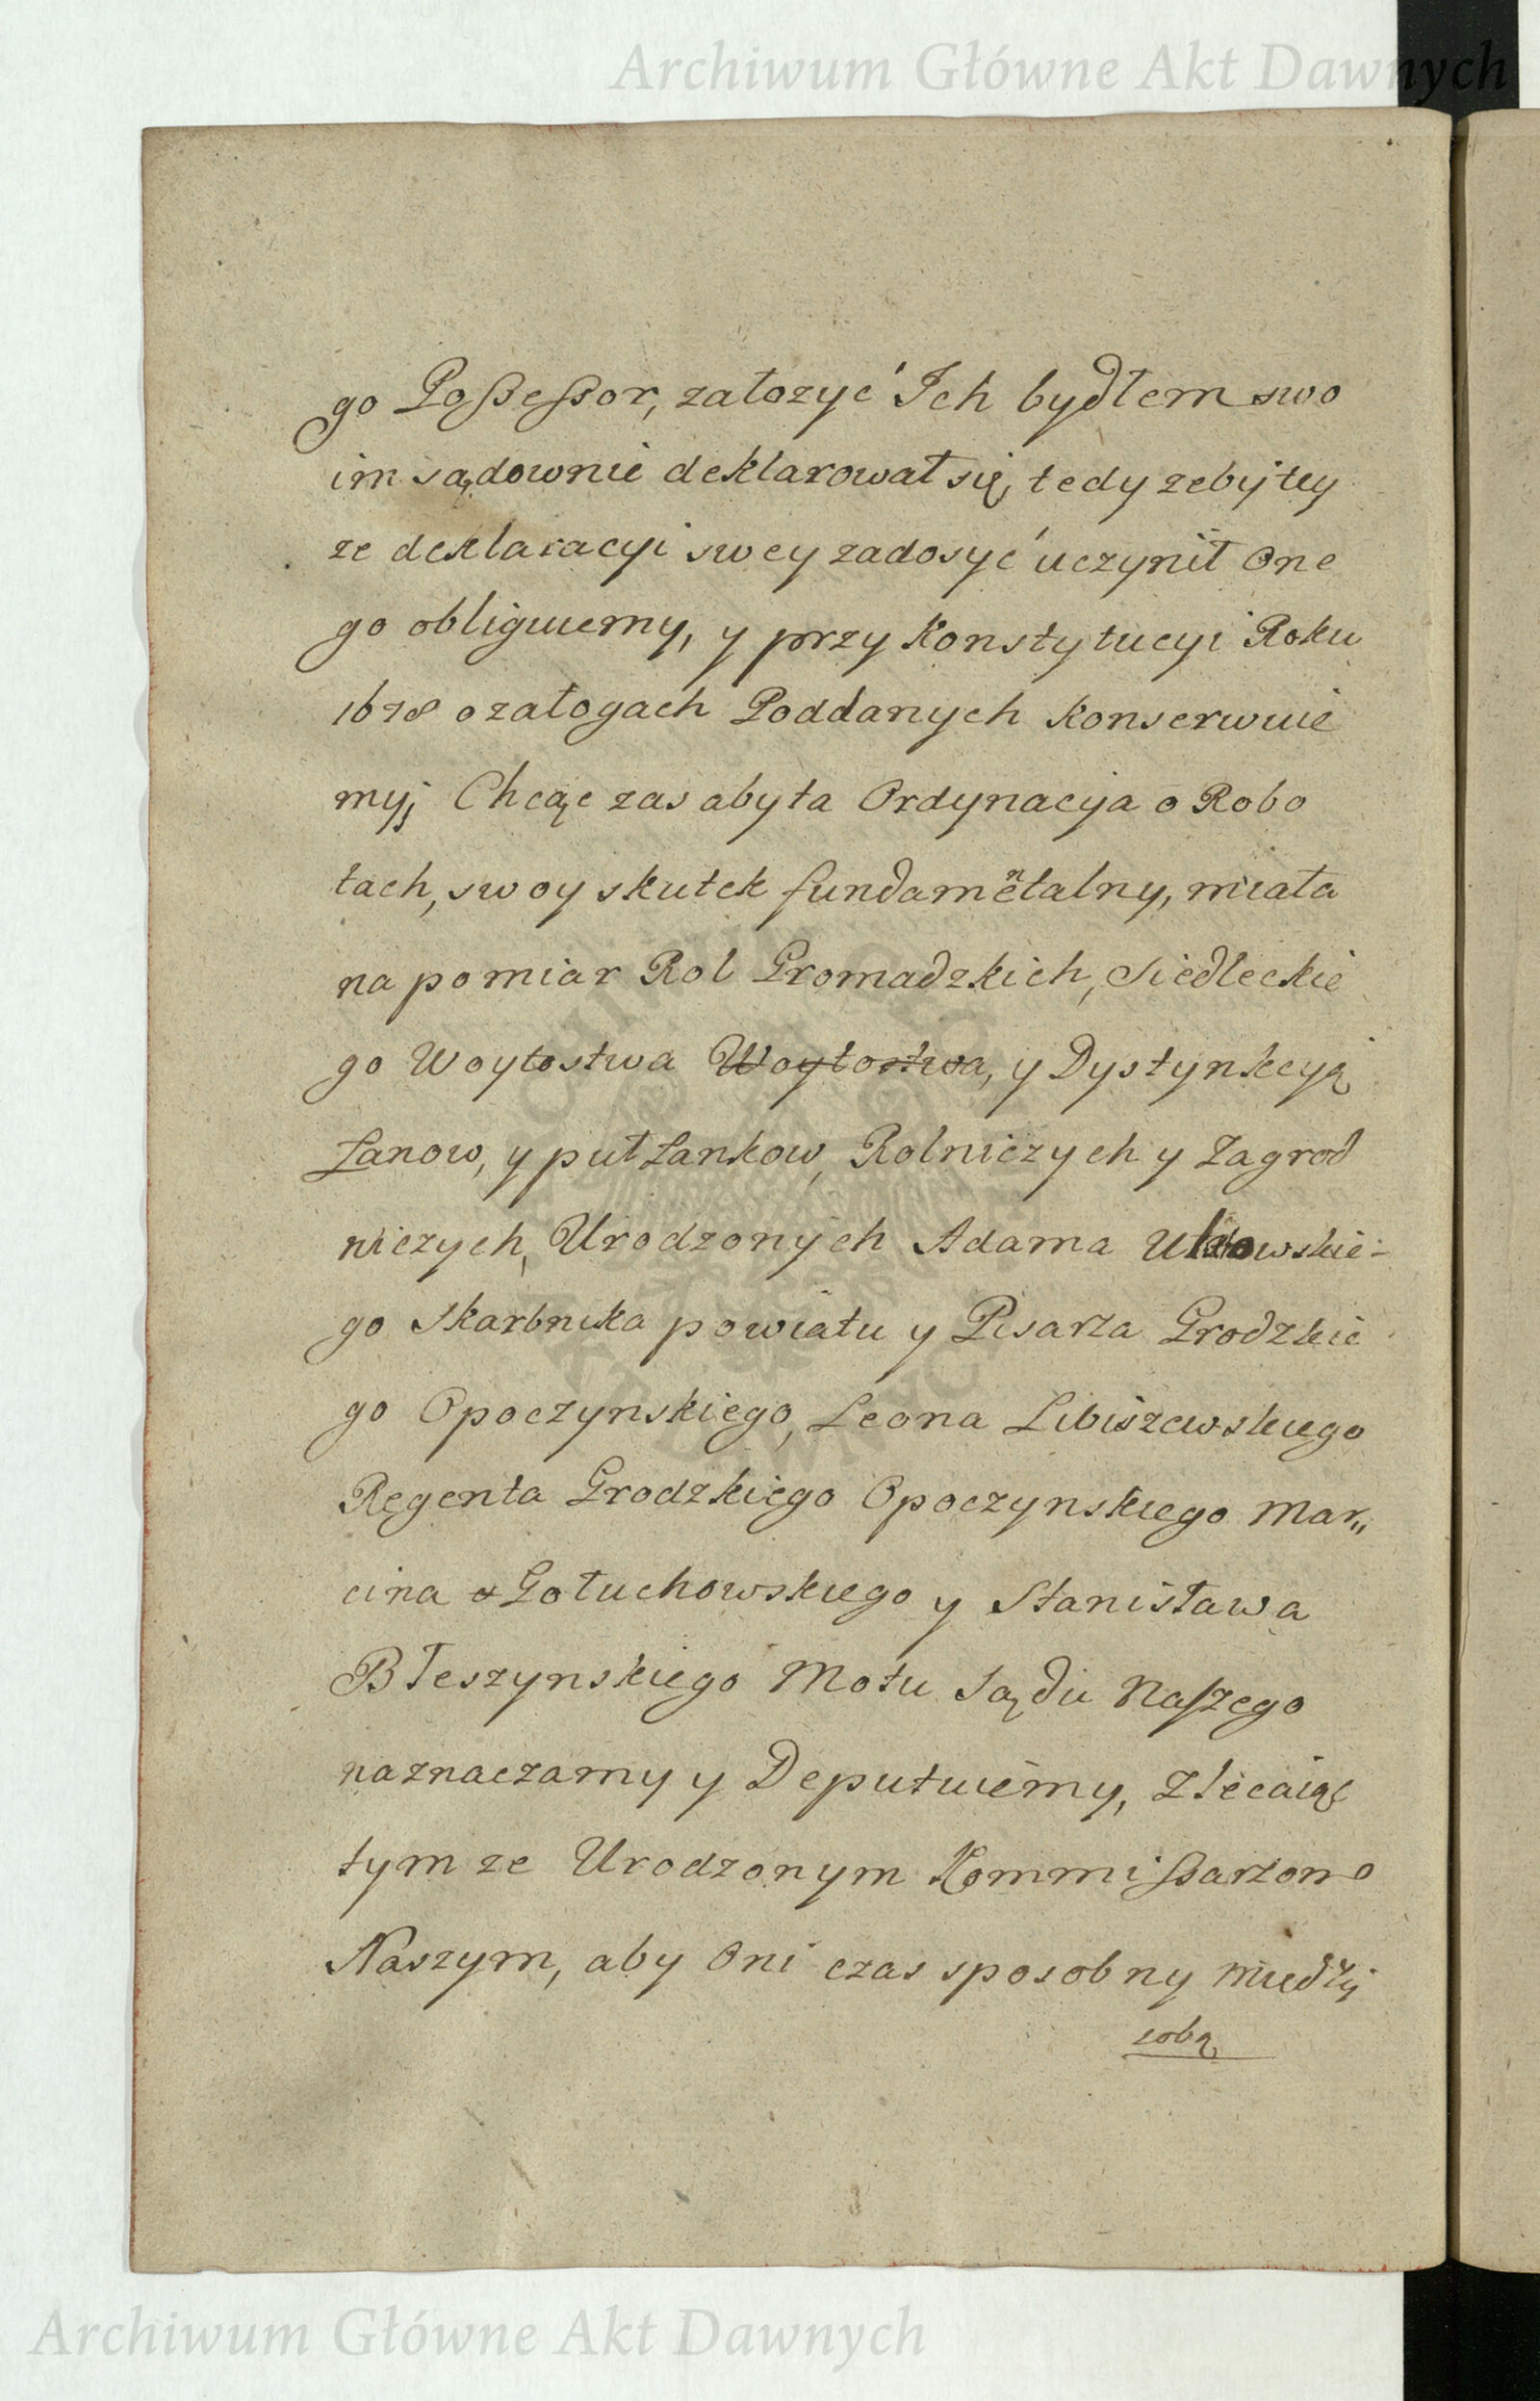 Archiwum Główne Akt Dawnych
go Possessor, załozyć Ich bydłem swo
im sądownie deklarował się, tedy zeby tey
ze deklaracyi swey zadosyć uczynił One
go obliguiemy, y przy Konstytucyi Roku
1678 o załogach Poddanych Konserwuie
my; Chcąc zas aby ta Ordynacyja o Robo
tach, swoy skutek fundamentalny, miała
na pomiar Rol Gromadzkich, Siedleckie
go Woytostwa Woytostwa, y Dystynkcyją
Łanow, y puł Łankow, Rolniczych y Zagrod
niczych, Urodzonych Adama
go Skarbnika powiatu y Pisarza Grodzkie
go Opoczynskiego, Leona Libiszewskiego
Regenta Grodzkiego Opoczynskiego Mar„
cina Gołuchowskiego y Stanisława
Błeszynskiego Motu Sądu Naszego
naznaczamy y Deputuiemy, Zlecaiąc
tym ze Urodzonym Kommissarzom
Naszym, aby Oni czas sposobny między
sobą
Archiwum Główne Akt Dawnych